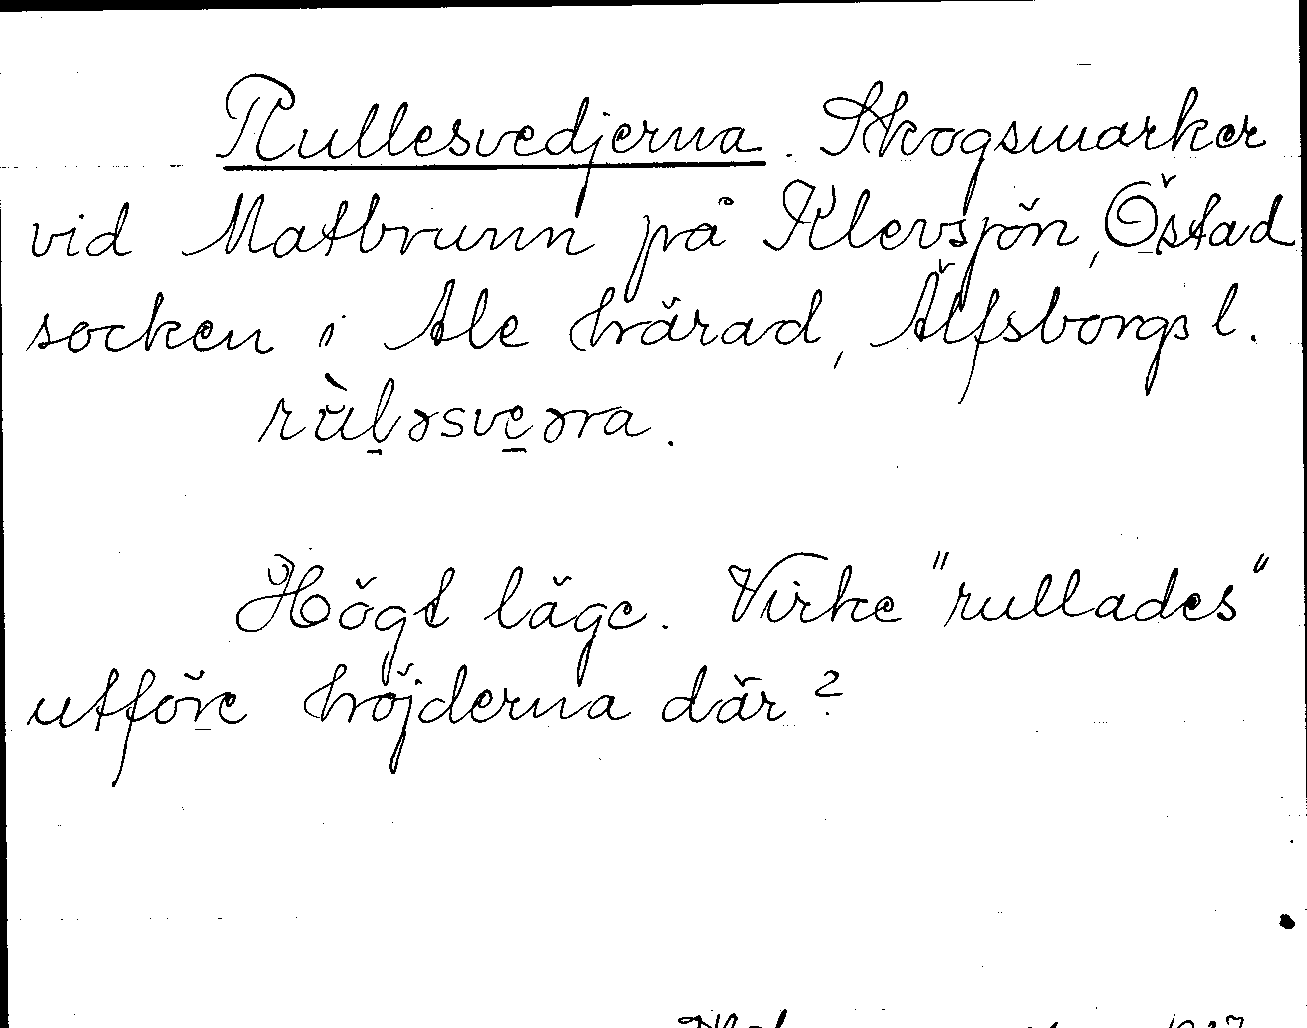 Rullesvedjerna. Skogsmarker
vid Matbrunn på Klevsjön, Östad
socken i Ale härad, Älfsborgs l.
rùḻəsve̱əra.
Högt läge. Virke "rullades"
utföre höjderna där?